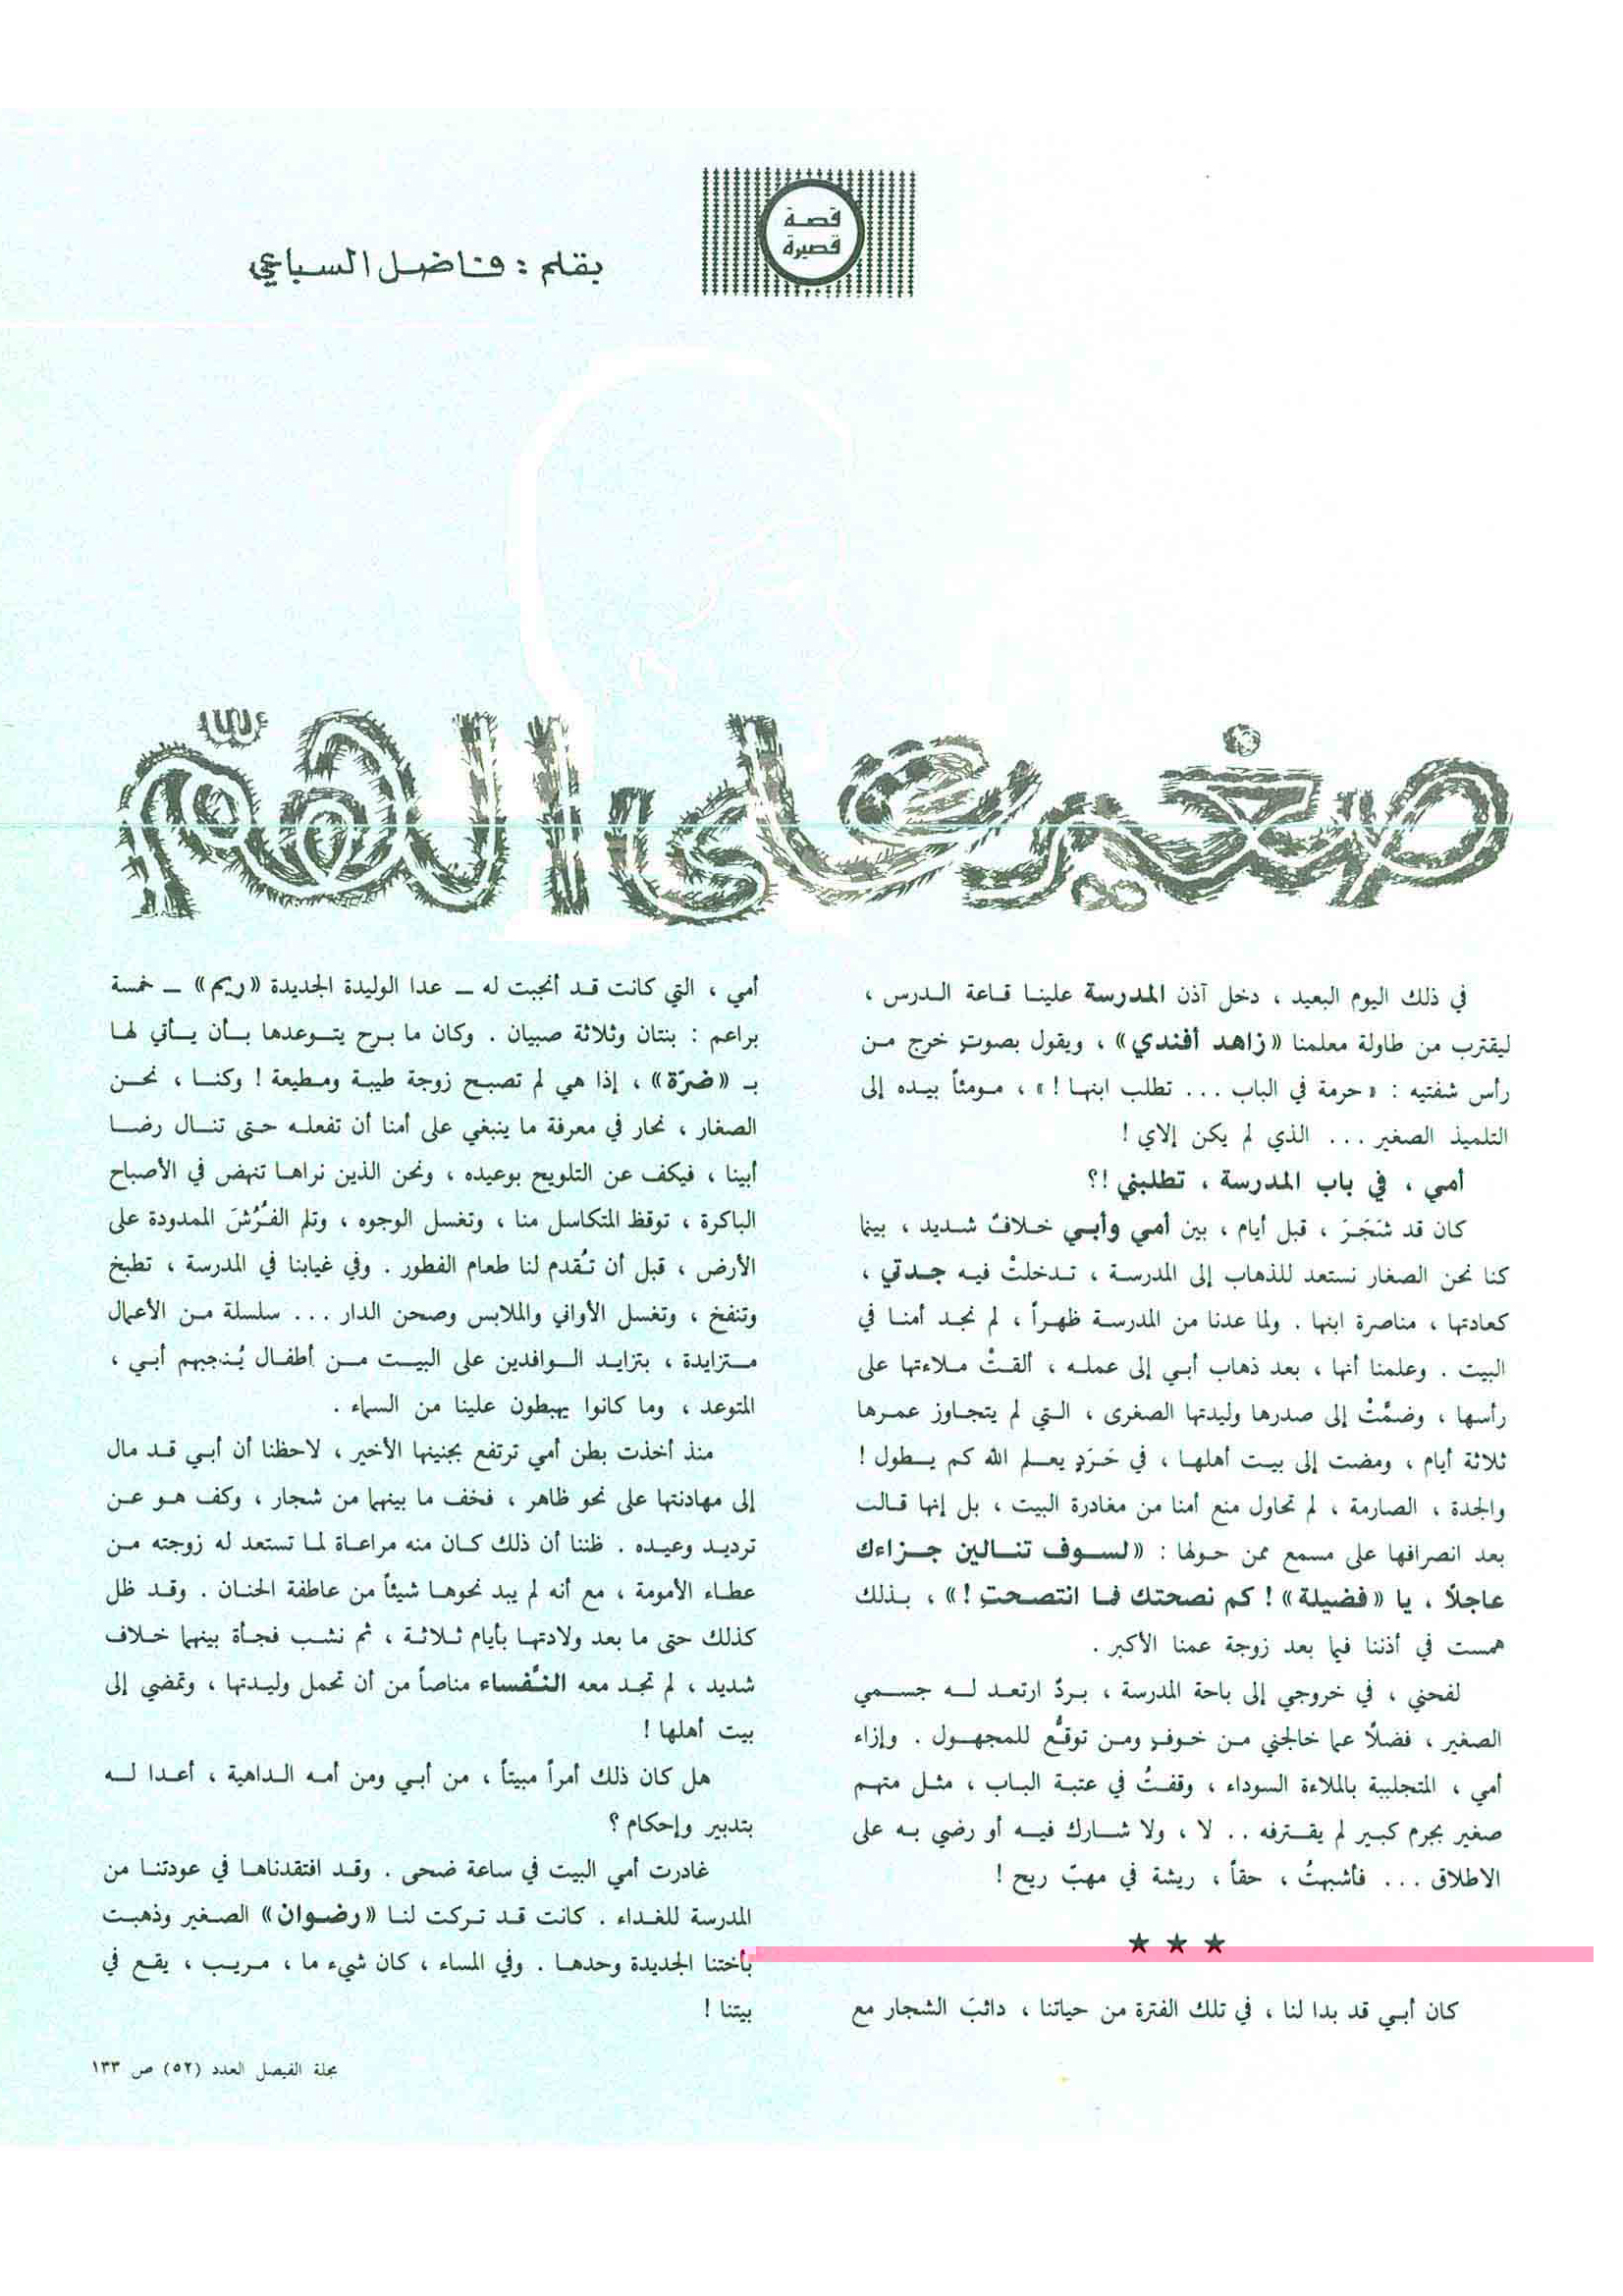 قصة
قصيرة
بقلم : فاضل السباعي
صغير على الهمّ
في ذلك اليوم البعيد ، دخل آذن المدرسة علينا قاعة الدرس ،
ليقترب من طاولة معلمنا «زاهد أفندي» ، ويقول بصوتٍ خرج من
رأس شفتيه : «حرمة في الباب ... تطلب ابنها !» ، مومئاً بيده إلى
التلميذ الصغير ... الذي لم يكن إلاي !
أمي ، في باب المدرسة ، تطلبني !؟
كان قد شَجَرَ ، قبل أيام ، بين أمي وأبي خلافٌ شديد ، بينما
كنا نحن الصغار نستعد للذهاب إلى المدرسة ، تدخلتْ فيه جدتي ،
كعادتها ، مناصرة ابنها . ولما عدنا من المدرسة ظهراً ، لم نجد أمنا في
البيت . وعلمنا أنها ، بعد ذهاب أبي إلى عمله ، ألقتْ ملاءتها على
رأسها ، وضمَّتْ إلى صدرها وليدتها الصغرى ، التي لم يتجاوز عمرها
ثلاثة أيام ، ومضت إلى بيت أهلها ، في حَرَدٍ يعلم الله كم يطول !
والجدة ، الصارمة ، لم تحاول منع أمنا من مغادرة البيت ، بل إنها قالت
بعد انصرافها على مسمع ممن حولها : «لسوف تنالين جزاءك
عاجلاً ، يا «فضيلة» ! كم نصحتك فما انتصحتِ !» ، بذلك
همست في أذننا فيما بعد زوجة عمنا الأكبر .
لفحني ، في خروجي إلى باحة المدرسة ، بردٌ ارتعد له جسمي
الصغير ، فضلاً عما خالجني من خوفٍ ومن توقُّع للمجهول . وإزاء
أمي ، المتجلببة بالملاءة السوداء ، وقفتُ في عتبة الباب ، مثل متهم
صغير بجرم كبير لم يقترفه .. لا ، ولا شارك فيه أو رضي به على
الاطلاق ... فأشبهتُ ، حقاً ، ريشة في مهبّ ريح !
★ ★ ★
كان أبي قد بدا لنا ، في تلك الفترة من حياتنا ، دائبَ الشجار مع
أمي ، التي كانت قد أنجبت له – عدا الوليدة الجديدة «ريم» – خمسة
براعم : بنتان وثلاثة صبيان . وكان ما برح يتوعدها بأن يأتي لها
بـ «ضرّة» ، إذا هي لم تصبح زوجة طيبة ومطيعة ! وكنا ، نحن
الصغار ، نحار في معرفة ما ينبغي على أمنا أن تفعله حتى تنال رضا
أبينا ، فيكف عن التلويح بوعيده ، ونحن الذين نراها تنهض في الأصباح
الباكرة ، توقظ المتكاسل منا ، وتغسل الوجوه ، وتلم الفُرُشَ الممدودة على
الأرض ، قبل أن تُقدم لنا طعام الفطور . وفي غيابنا في المدرسة ، تطبخ
وتنفخ ، وتغسل الأواني والملابس وصحن الدار ... سلسلة من الأعمال
متزايدة ، بتزايد الوافدين على البيت من أطفال يُنجبهم أبي ،
المتوعد ، وما كانوا يهبطون علينا من السماء .
منذ أخذت بطن أمي ترتفع بجنينها الأخير ، لاحظنا أن أبي قد مال
إلى مهادنتها على نحو ظاهر ، فخف ما بينهما من شجار ، وكف هو عن
ترديد وعيده . ظننا أن ذلك كان منه مراعاة لما تستعد له زوجته من
عطاء الأمومة ، مع أنه لم يبد نحوها شيئاً من عاطفة الحنان . وقد ظل
كذلك حتى ما بعد ولادتها بأيام ثلاثة ، ثم نشب فجأة بينهما خلاف
شديد ، لم تجد معه النُّفساء مناصاً من أن تحمل وليدتها ، وتمضي إلى
بيت أهلها !
هل كان ذلك أمراً مبيتاً ، من أبي ومن أمه الداهية ، أعدا له
بتدبير وإحكام ؟
غادرت أمي البيت في ساعة ضحى . وقد افتقدناها في عودتنا من
المدرسة للغداء . كانت قد تركت لنا «رضوان» الصغير وذهبت
بأختنا الجديدة وحدها . وفي المساء ، كان شيء ما ، مريب ، يقع في
بيتنا !
مجلة الفيصل العدد (٥٢) ص ١٣٣